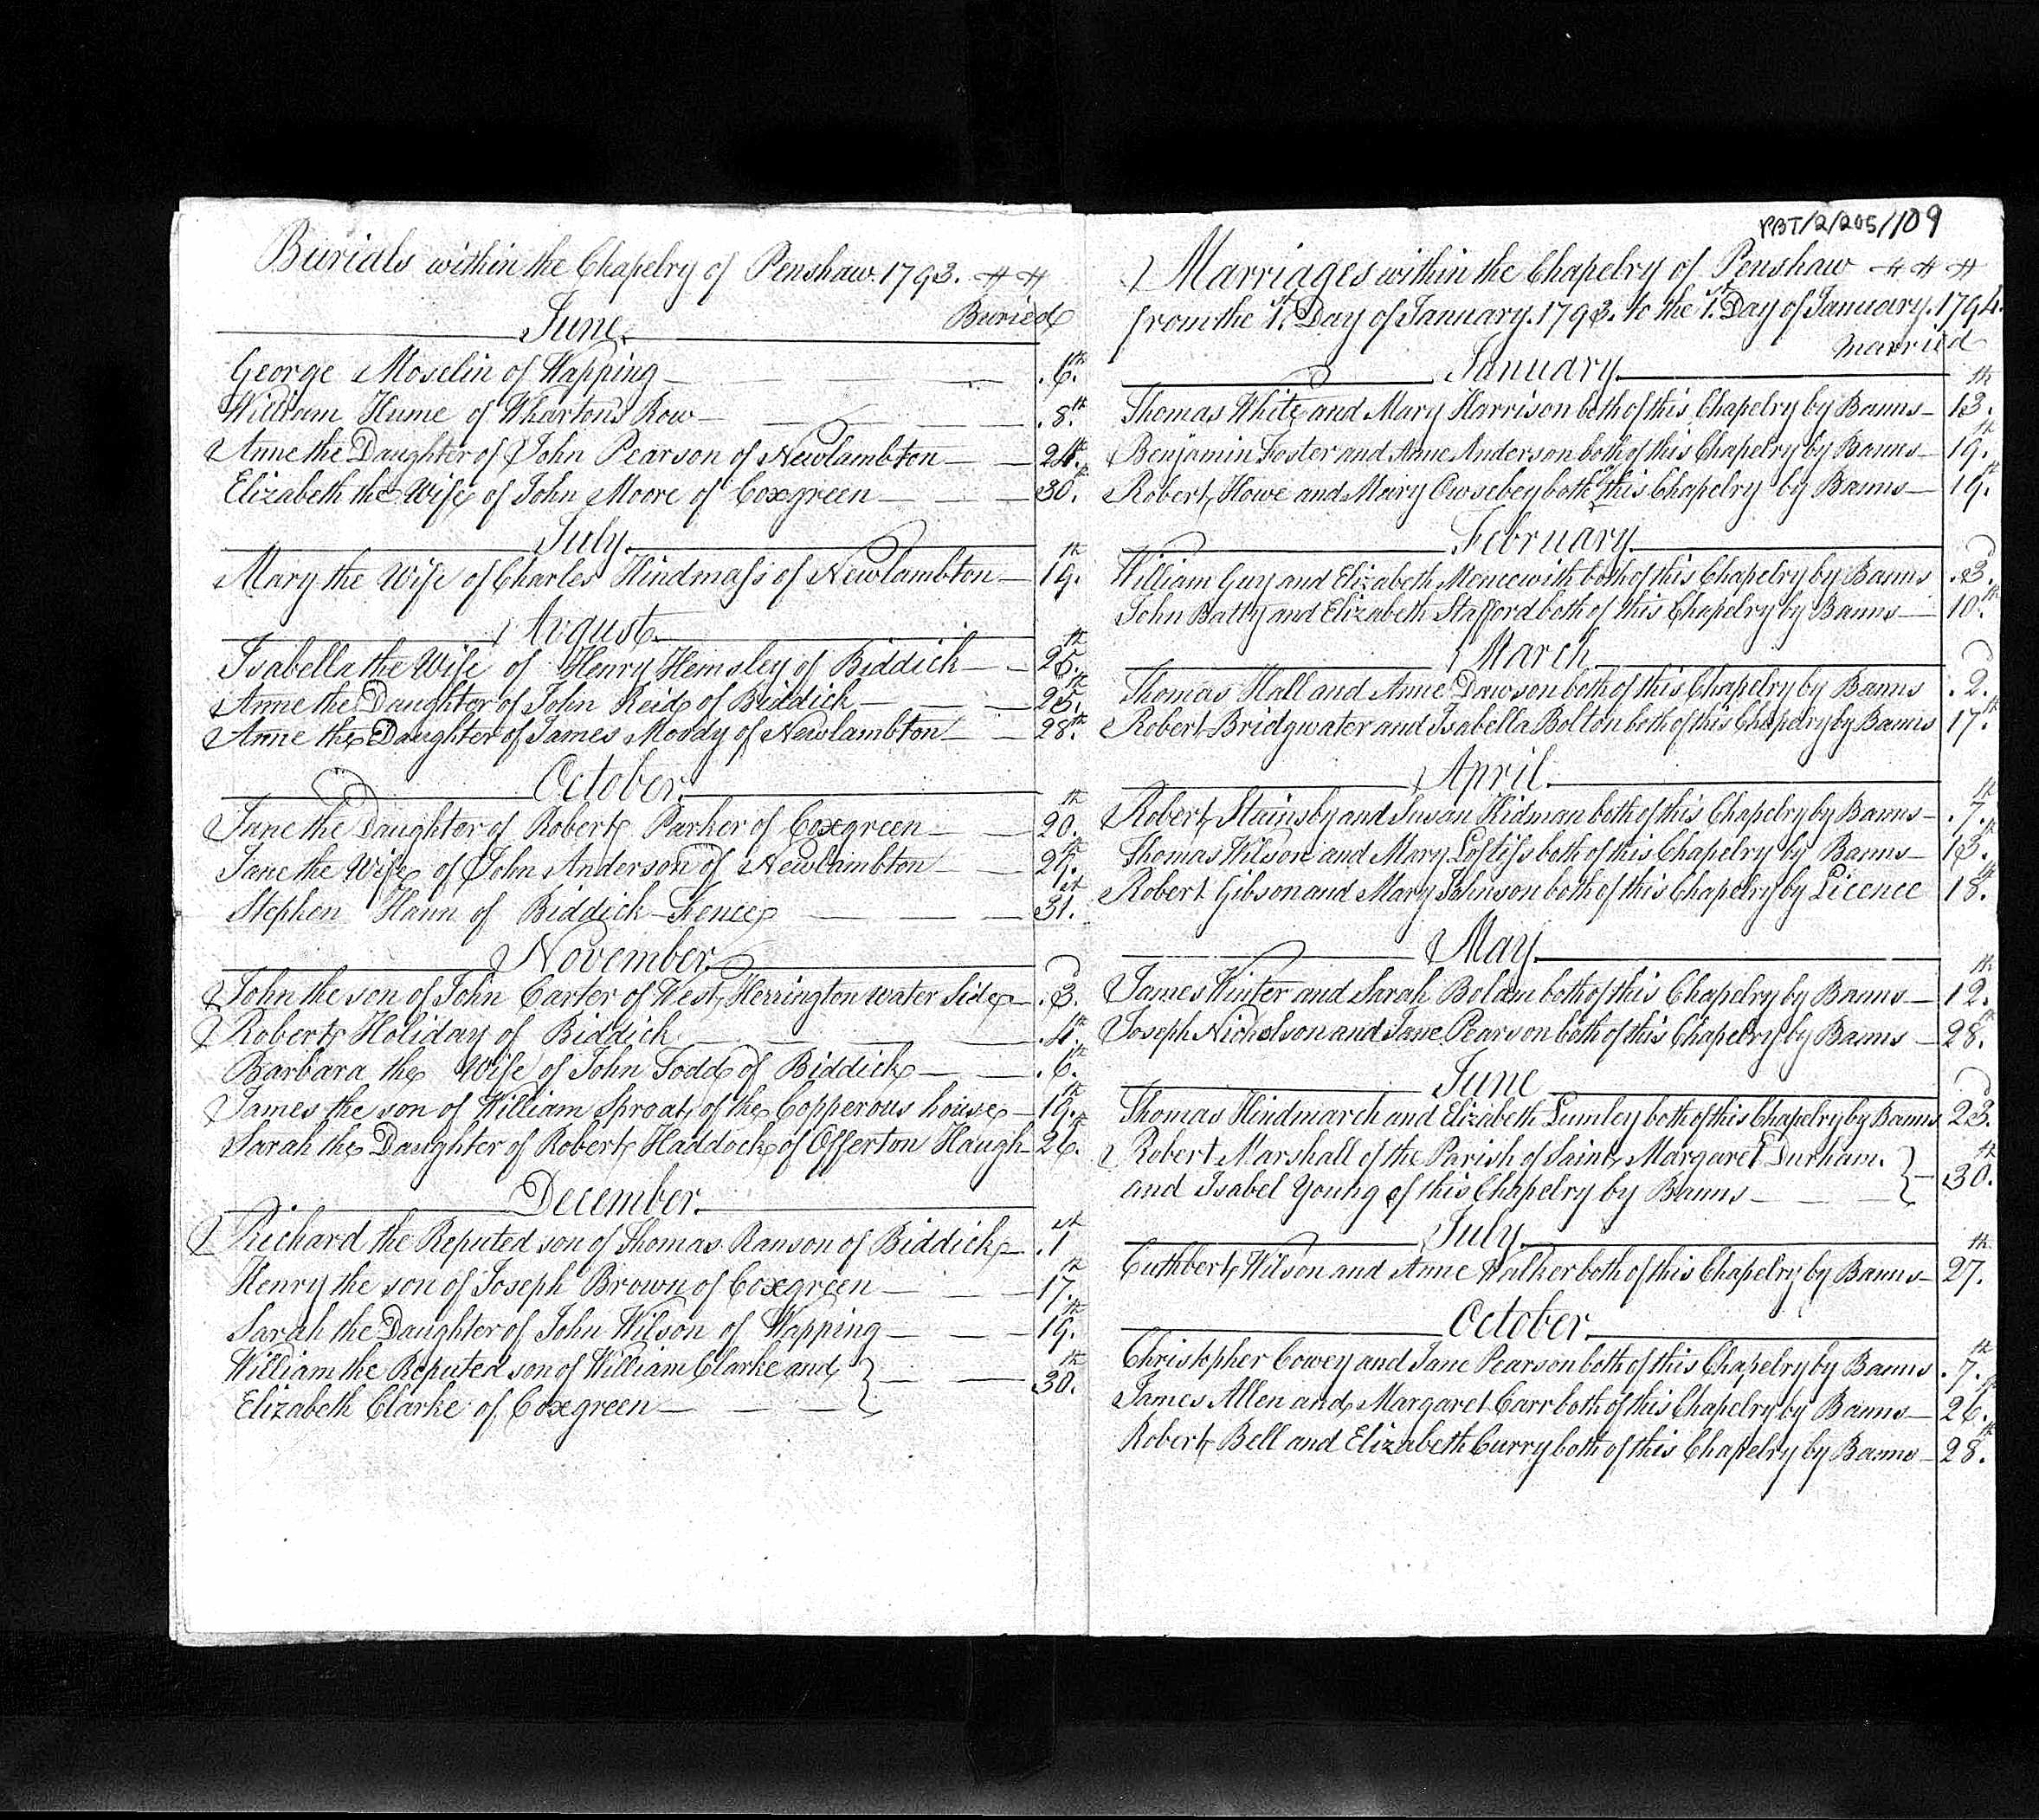 Burials within the Chapelry of Penshaw. 1793.
Buried
June.
George Moselin of Wapping 6th.
William Hume of Whartons Row 8th.
Anne the Daughter of John Pearson of Newlambton 24th.
Elizabeth the Wife of John Moore of Coxgreen 30th.
July.
Mary the Wife of Charles Hindmass of Newlambton 19th.
August.
Isabella the Wife of Henry Hemsley of Biddick 25th.
Anne the Daughter of John Reid of Biddick 25th.
Anne the Daughter of James Moody of Newlambton 28th.
October.
Jane the Daughter of Robert Parker of Coxgreen 20th.
Jane the Wife of John Anderson of Newlambton 29th.
Stephen Hann of Biddick Fence 31st.
November.
John the son of John Carter of West Herrington Water Side 3d.
Robert Holiday of Biddick 4th.
Barbara the Wife of John Todd of Biddick 6th.
James the son of William Sproat of the Copperous house 19th.
Sarah the Daughter of Robert Haddock of Offerton Haugh 26th.
December.
Richard the Reputed son of Thomas Ranson of Biddick 1st
Henry the son of Joseph Brown of Coxgreen 17th.
Sarah the Daughter of John Wilson of Wapping 19th.
William the Reputed son of William Clarke and
Elizabeth Clarke of Coxgreen 30th.
PBT/2/205/109
Marriages within the Chapelry of Penshaw
from the 1st. Day of January. 1793. to the 1st. Day of January. 1794.
married
January.
Thomas White and Mary Harrison both of this Chapelry by Banns 13th.
Benjamin Foster and Anne Anderson both of this Chapelry by Banns 19th.
Robert Howe and Mary Owsebey both of this Chapelry by Banns 19th.
February.
William Guy and Elizabeth both of this Chapelry by Banns 3d.
John Batty and Elizabeth Stafford both of this Chapelry by Banns 10th.
March
Thomas Hall and Anne Dawson both of this Chapelry by Banns 2d.
Robert Bridgwater and Isabella Bolton both of this Chapelry by Banns 17th.
April.
Robert Stainsby and Susan Kidman both of this Chapelry by Banns 7th.
Thomas Wilson and Mary Loftiss both of this Chapelry by Banns 13th.
Robert Gibson and Mary Johnson both of this Chapelry by Licence 18th.
May.
James Winter and Sarah Bolam both of this Chapelry by Banns 12th.
Joseph Nicholson and Jane Pearson both of this Chapelry by Banns 28th.
June
Thomas Hindmarch and Elizabeth Lumley both of this Chapelry by Banns 23d.
Robert Marshall of the Parish of Saint Margaret Durham.
and Isabel Young of this Chapelry by Banns 30th.
July.
Cuthbert Wilson and Anne Walker both of this Chapelry by Banns 27th.
October.
Christopher Cowey and Jane Pearson both of this Chapelry by Banns 7th.
James Allen and Margaret Carr both of this Chapelry by Banns 26th.
Robert Bell and Elizabeth Curry both of this Chapelry by Banns 28th.